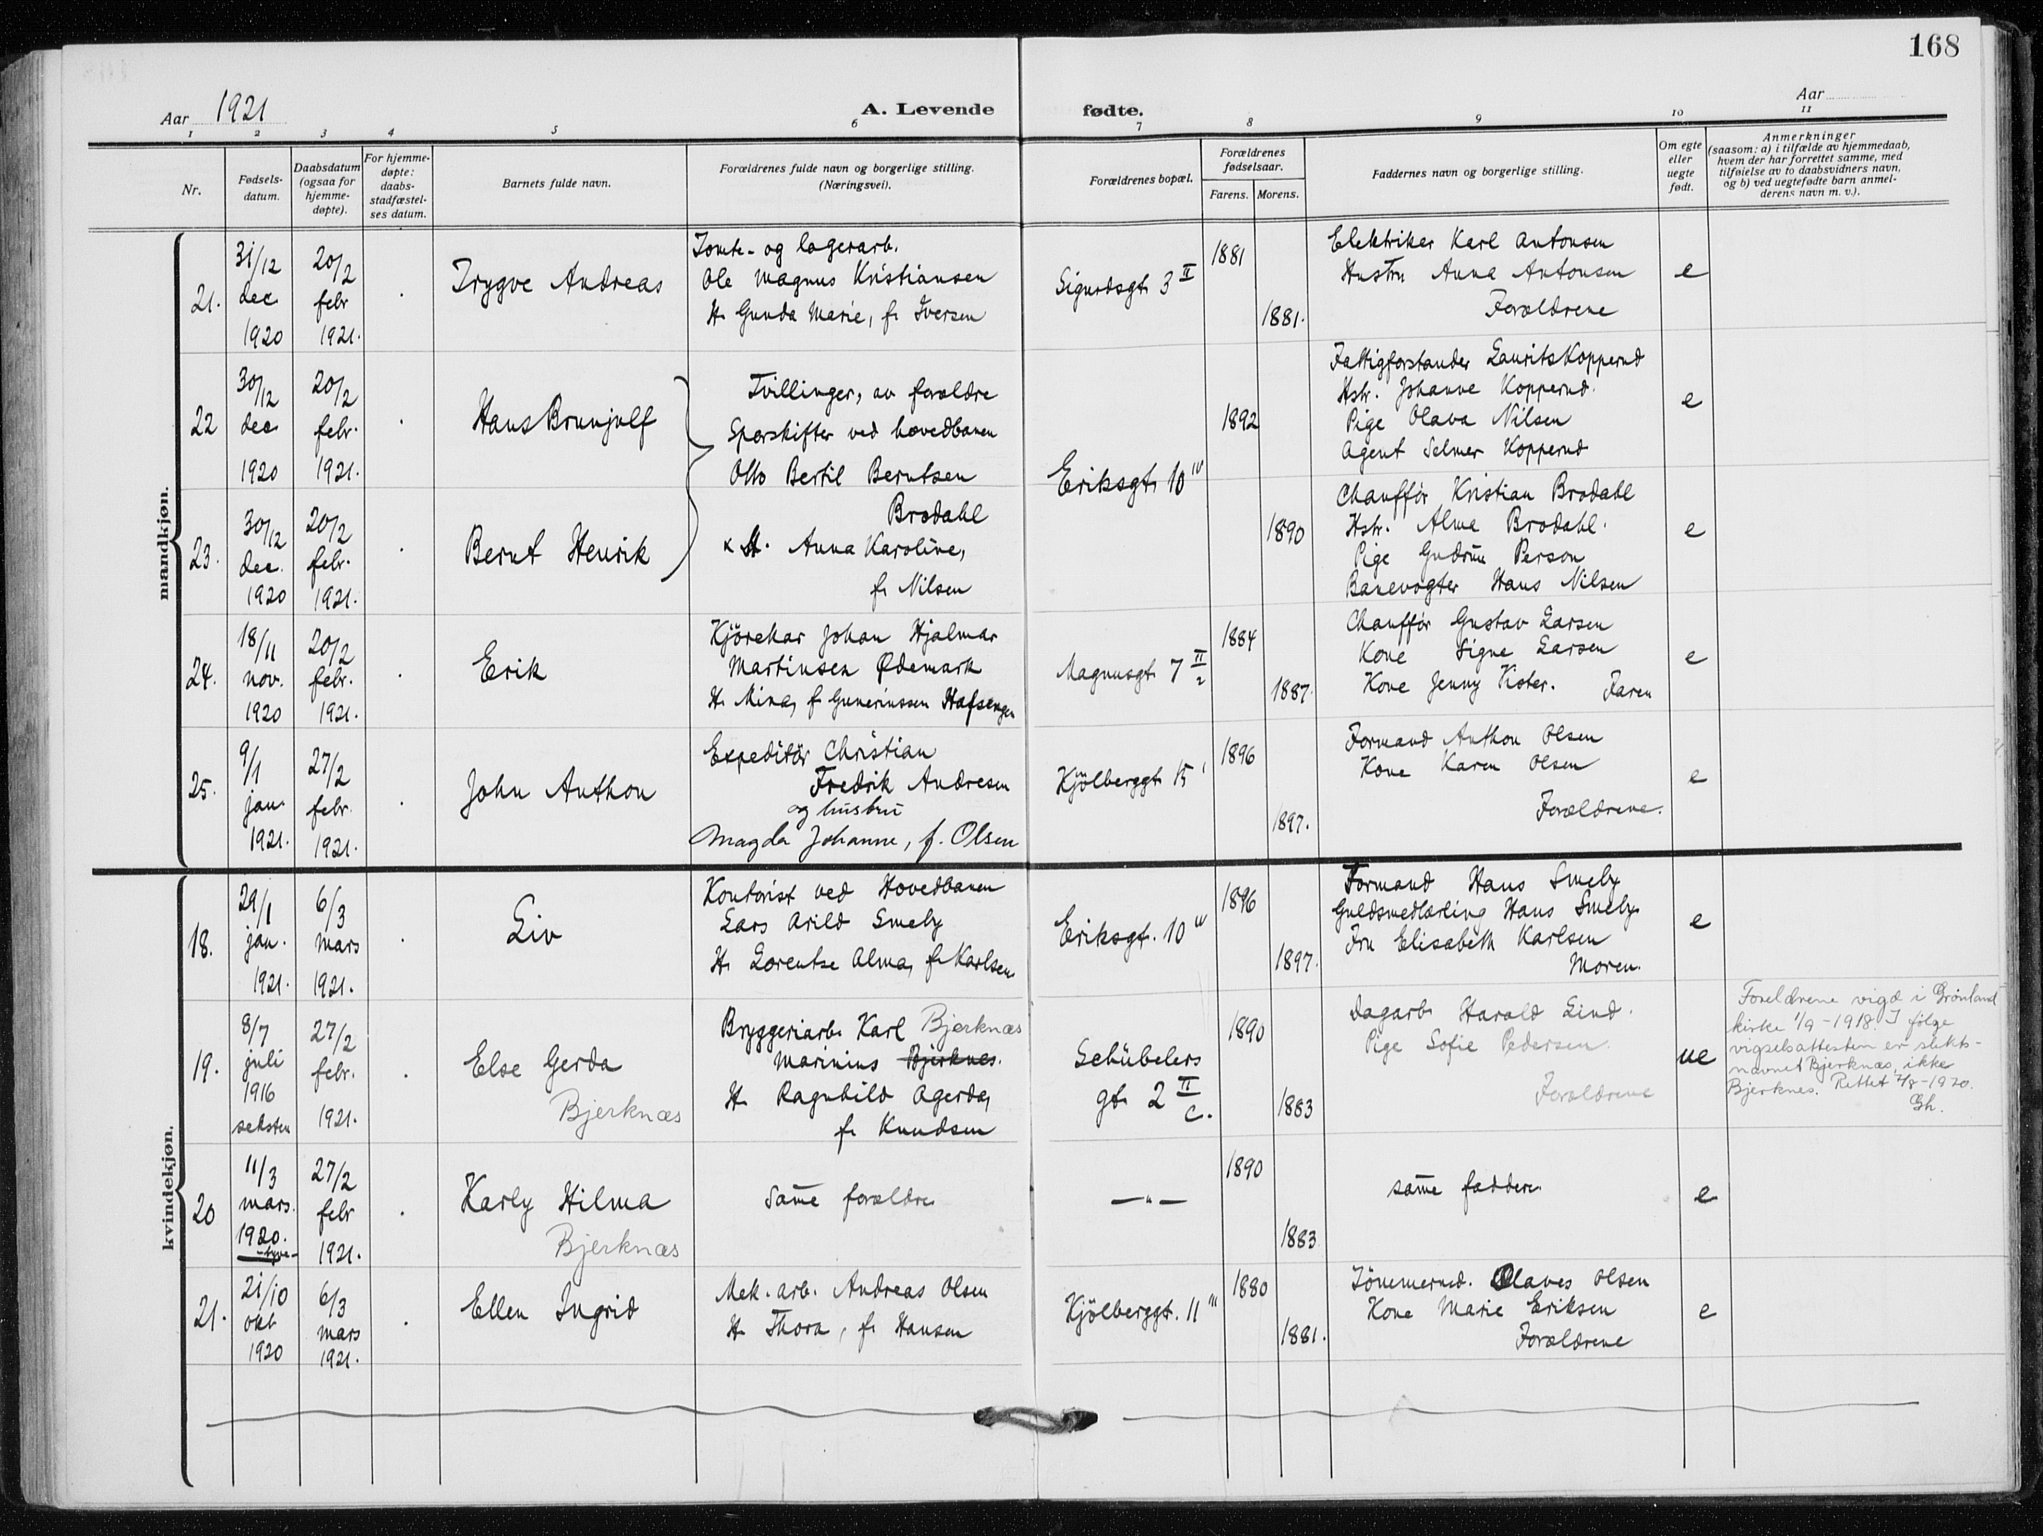 168
Aar 1921
A. Levende fødte.
Aar
1 2 3 4 5 6 7 8 9 10 11
Nr.
Fødsels-
datum.
Daabsdatum
(ogsaa for
hjemme-
døpte).
For hjemme-
døpte:
daabs-
stadfæstel-
ses datum.
Barnets fulde navn.
Forældrenes fulde navn og borgerlige stilling.
(Næringsvei).
Forældrenes bopæl.
Forældrenes
fødselsaar.
Farens. Morens.
Faddernes navn og borgerlige stilling.
Om egte
eller
uegte
født.
Anmerkninger
(saasom: a) i tilfælde av hjemmedaab,
hvem der har forrettet samme, med
tilføielse av to daabsvidners navn,
og b) ved uegtefødte barn anmel-
derens navn m. v.).
mandkjøn.
21.
31/12
dec
1920
20/2
febr
1921.
Trygve Andreas
Tomte- og lagerarb.
Ole Magnus Kristiansen
H. Gunda Marie, f. Iversen
Sigurdsgt. 3 II
1881
1881.
Elektriker Karl Antonsen
Hustru Anna Antonsen
Forældrene
e
22
30/12
dec
1920
20/2
febr.
1921.
Hans Brunjulf
Tvillinger, av forældre
Sporskifter ved hovedbanen
Otto Bertil Berntsen
Brodahl
x H. Anna Karoline,
f. Nilsen
Eriksgt. 10 IV
1892
Fattigforstander Laurits Koppernd
Hstr. Johanne Koppernd.
Pige Olava Nilsen
Agent Selmer Koppernd
e
23.
30/12
dec.
1920
20/2
febr.
1921.
Bernt Henrik
1890
Chauffør Kristian Brodahl
Hstr. Alma Brodahl.
Pige Gudrun Person
Banevogter Hans Nilsen
e
24.
18/11
nov.
1920
20/2
febr.
1921.
Erik
Kjörekar Johan Hjalmar
Martinsen Ødemark
H. Mina, f. Gunerinssen Hafsengen
Magnusgt. 7 II
2
1884
1887.
Chauffør Gustav Larsen
Kone Signe Larsen
Kone Jenny Kister. Faren
e
25.
9/1
jan.
1921.
27/2
febr.
1921.
John Anthon
Expeditör Christian
Fredrik Andresen
og hustru
Magda Johanne, f. Olsen
Kjölberggt. 15 I
1896
1897.
Formand Anthon Olsen
Kone Karen Olsen
Forældrene.
e
kvindekjøn.
18.
29/1
jan.
1921.
6/3
mars
1921.
Liv
Kontorist ved Hovedbanen
Lars Arild Smeby
H. Lorentse Alma, f. Karlsen
Eriksgt. 10 IV
1896
1897.
Formand Hans Smeby
Guldsmedlærling Hans Smeby
Fru Elisabeth Karlsen
Moren.
e
19.
8/7
juli
1916
seksten
27/2
febr.
1921.
Else Gerda
Bjerknæs
Bryggeriarb. Karl Bjerknæs
Marinius Bjerknes.
H. Ragnhild Agerda,
f. Knudsen
Schübelers
gt. 2 II
C.
1890
1883
Dagarb. Harald Lind.
Pige Sofie Pedersen.
Forældrene
ue
Forældrene vigd i Grønland
kirke 1/9-1918. I følge
vigselsattesten er slekts-
navnet Bjerknæs, ikke
Bjerknes. Rettet 2/8-1920.
Gh.
20
11/3
mars.
1920.
-tyve-
27/2
febr
1921.
Karly Hilma
Bjerknæs
Samme forældre
—"—
1890
1883
samme faddere
e
21.
21/10
okt
1920
6/3
mars
1921.
Ellen Ingrid
Mek. arb. Andreas Olsen
H. Thora, f. Hansen
Kjölberggt. 11 III
1880
1881.
Tömmermd. Olaves Olsen
Kone Marie Eriksen
Forældrene
e